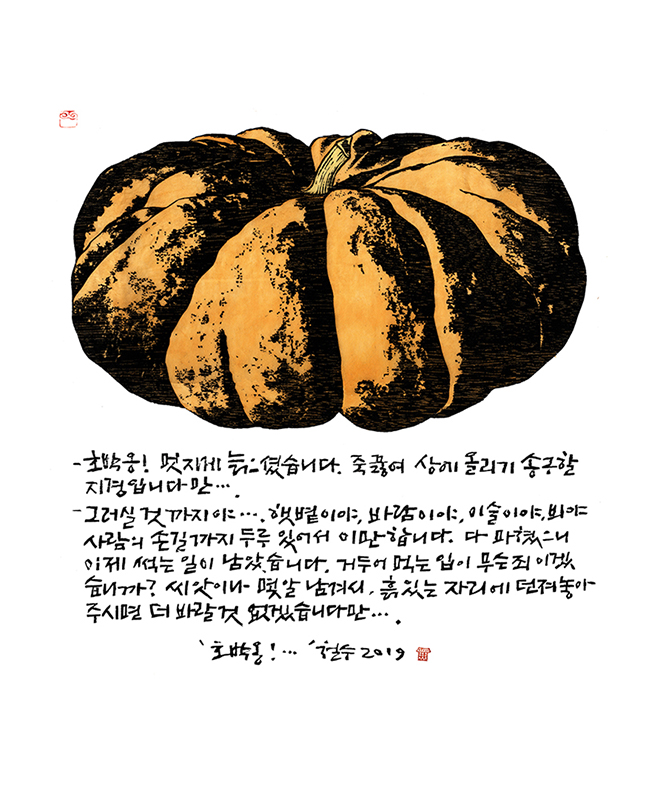 -호박옹! 멋지게 늙으셨습니다. 죽끓여 상에 올리기 송구할
지경입니다만….
-그러실 것 까지야…. 햇볕이야, 바람이야, 이슬이야, 뵈야
사람의 손길까지 두루 있어서 이만합니다. 다 파했으니
이제 썩는 일이 남았습니다. 거두어 먹는 입이 무슨 죄이겠
습니까? 씨앗이나 몇알 남겨서, 흙있는 자리에 던져놓아
주시면 더 바랄것 없겠습니다만….
'호박옹!…' 철수 2019